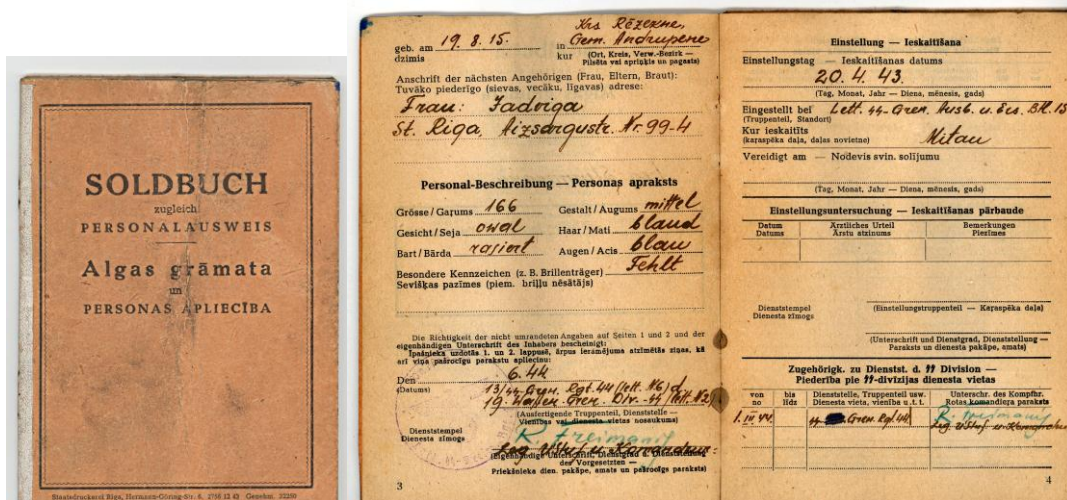 SOLDBUCH
zugleich
PERSONALAUSWEIS
Algas grāmata
un
PERSONAS APLIECĪBA
Staatsdruckerei Riga, Hermann-Göring-Str. 6.
Krs Rēzekne,
geb. am 19. 8. 15. in Gem. Andrupene
dzimis kur (Ort, Kreis, Verw.-Bezirk —
Pilsēta vai apriņķis un pagasts)
Anschrift der nächsten Angehörigen (Frau, Eltern, Braut):
Tuvāko piederīgo (sievas, vecāku, līgavas) adrese:
Frau: Jadviga
St. Riga, Aizsargustr. Nr. 99-4
Personal-Beschreibung — Personas apraksts
Grösse / Garums 166 Gestalt / Augums mittel
Gesicht / Seja owal Haar / Mati bland
Bart / Bārda rasiert Augen / Acis blau
Besondere Kennzeichen (z. B. Brillenträger) Fehlt
Sevišķas pazīmes (piem. briļļu nēsātājs)
Die Richtigkeit der nicht umrandeten Angaben auf Seiten 1 und 2 und der
eigenhändigen Unterschrift des Inhabers bescheinigt:
Īpašnieka uzdotās 1. un 2. lappusē, ārpus ierāmējuma atzīmētās ziņas, kā
arī viņa pašrocīgu parakstu apliecina:
Den 6.44
(Datums)
(Ausfertigende Truppenteil, Dienststelle —
Vienības vai dienesta vietas nosaukums)
Dienststempel
Dienesta zīmogs
R. Freimanis
(Eigenhändige Unterschrift, Dienstgrad u. Dienststellung
des Vorgesetzten —
Priekšnieka dien. pakāpe, amats un pašrocīgs paraksts)
3
Einstellung — Ieskaitīšana
Einstellungstag — Ieskaitīšanas datums
20. 4. 43.
(Tag, Monat, Jahr — Diena, mēnesis, gads)
Eingestellt bei Lett. ᛋᛋ-Gren. Ausb. u. Ers. Btl. 15
(Truppenteil, Standort)
Kur ieskaitīts
(karaspēka daļa, daļas novietne) Mitau
Vereidigt am — Nodevis svin. solījumu
(Tag, Monat, Jahr — Diena, mēnesis, gads)
Einstellungsuntersuchung — Ieskaitīšanas pārbaude
Datum Ärztliches Urteil Bemerkungen
Datums Ārstu atzinums Piezīmes
Dienststempel (Einstellungstruppenteil — Karaspēka daļa)
Dienesta zīmogs
(Unterschrift und Dienstgrad, Dienststellung —
Paraksts un dienesta pakāpe, amats)
Zugehörigk. zu Dienstst. d. ᛋᛋ Division —
Piederība pie ᛋᛋ-divīzijas dienesta vietas
von bis Dienststelle, Truppenteil usw. Unterschr. des Kompfhr.
no līdz Dienesta vieta, vienība u. t. t. Rotas komandiera paraksts
1. III 44. ᛋᛋ Gren. Rgt. 44
4